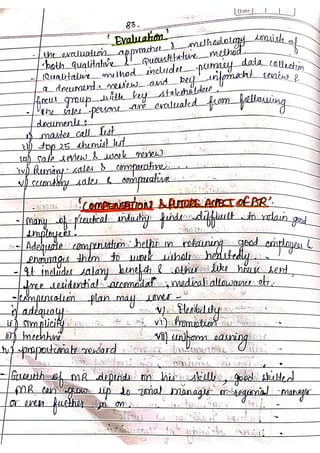 Date
83.
' Evaluation '
the evaluation approaches & methodology consists of
both qualitative & quantitative method.
- Qualitative method includes primary data collection
a document review and key informant review &
focus group with key stakeholders.
- The sales persons are evaluated from following
documents:
i) master call list
ii) Top 25 chemist list
iii) Sale review & work review
iv) Primary sales & comparative
v) secondary sales & comparative
' COMPENSATION & FUTURE ASPECT OF PSR'
- many of p'ceutical industry finds difficult to retain good
employees.
- Adequate compensation helps in retaining good employees &
encourages them to work whole heartedly.
- It includes salary benefit & other like house rent,
free residential accomodat, medical allowance etc.
- compensation plan may cover -
i) adequacy v). Flexibility
ii) simplicity vi) Promotion
iii) Incentive vii) uniform earning
iv) proportionate reward
- Growth of MR depends on his skills, good skilled
MR can grow up to zonal manager or regional manager
or even further in on.